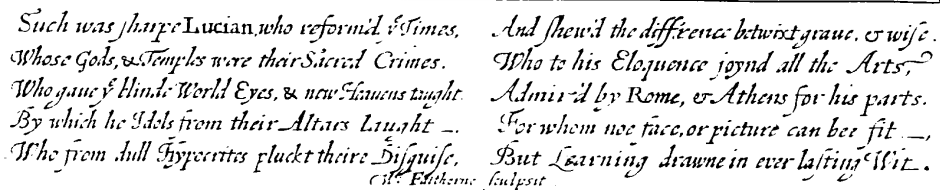 Such was sharpe Lucian, who reform'd yͤ Times,
Whose Gods, & Temples were their Sacred Crimes.
Who gaue yͤ blinde World Eyes, & new Heauens taught
By which he Idols from their Altars Laught —.
Who from dull Hypocrites pluckt theire Disguise,
And shew'd the difference betwixt graue, & wise.
Who to his Eloquence joynd all the Arts,
Admir'd by Rome, & Athens for his parts.
For whom noe face, or picture can bee fit —,
But Learning drawne in ever lasting Wit.
Wᵐ Faitherne sculpsit